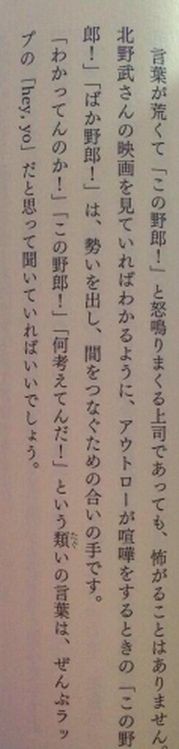 言葉が荒くて「この野郎！」と怒鳴りまくる上司であっても、怖がることはありません。
北野武さんの映画を見ていればわかるように、アウトローが喧嘩をするときの「この野
郎！」「ばか野郎！」は、勢いを出し、間をつなぐための合いの手です。
「わかってんのか！」「この野郎！」「何考えてんだ！」という類いの言葉は、ぜんぶラッ
プの「hey, yo」だと思って聞いていればいいでしょう。